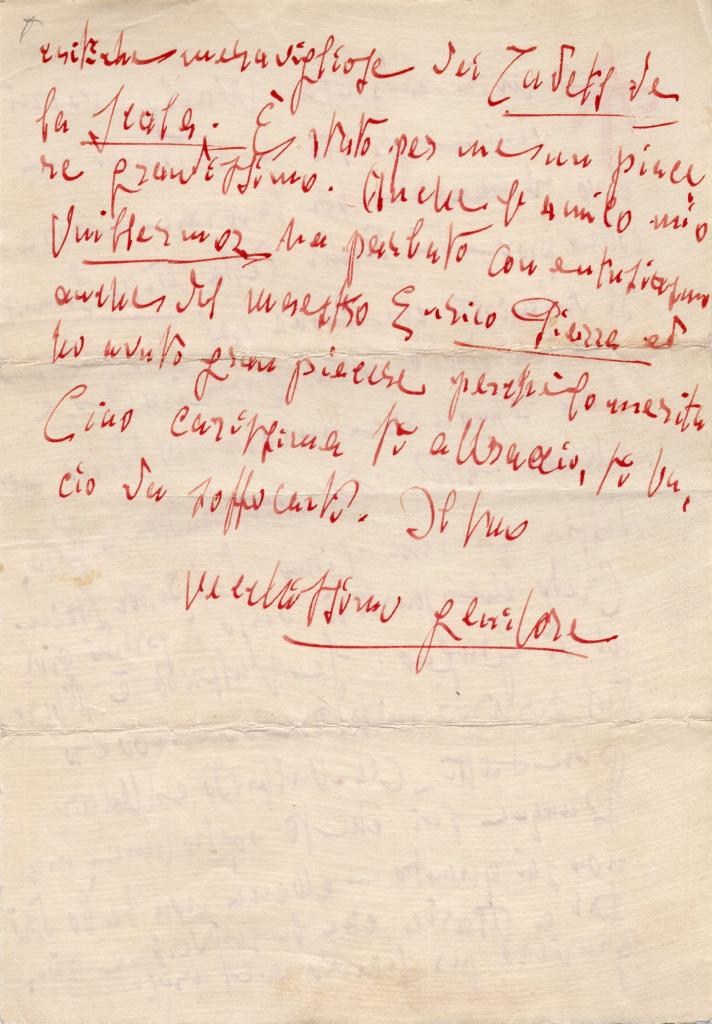 critiche meravigliose dei Cadets de
la Scala. È stato per me un piace
re grandissimo. Anche l'amico mio
Vuillermoz ha parlato con entusiasmo
anche del maestro Enrico Piazza ed
ho avuto gran piacere perchè lo merita
Ciao carissima ti abbraccio, ti ba,
cio da soffocarti. Il tuo
vecchissimo genitore